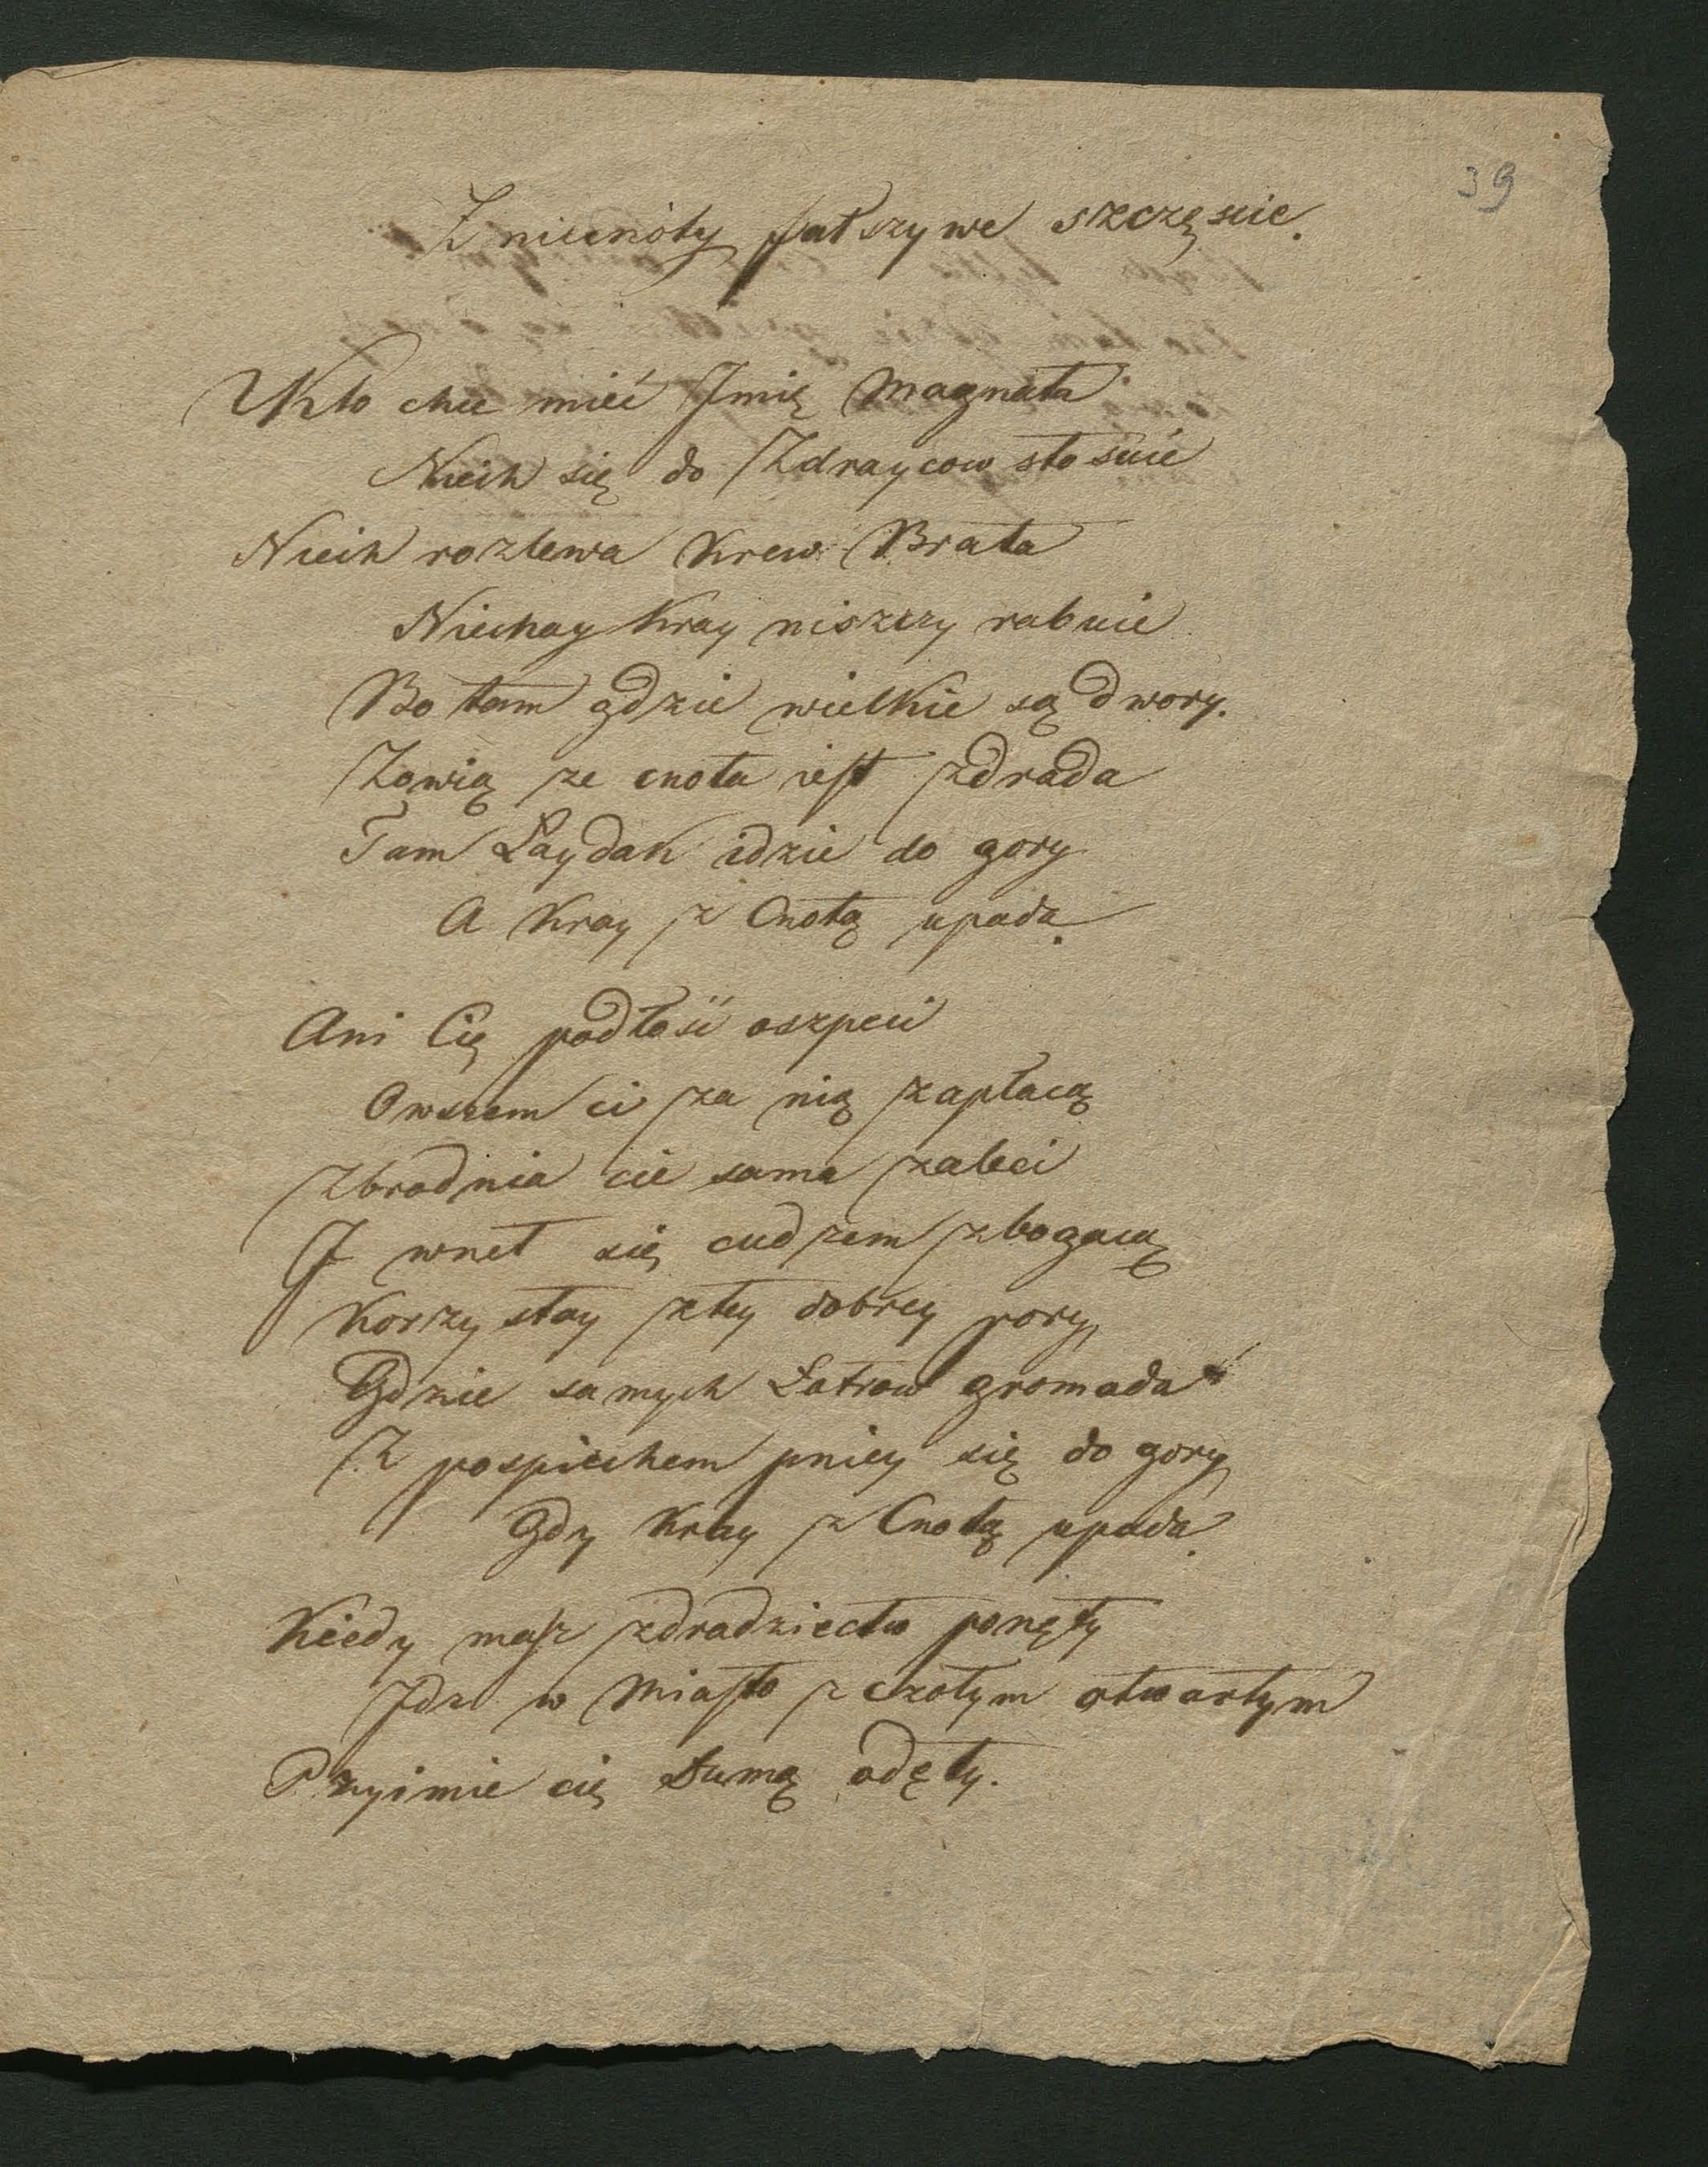 39
Z niecnoty fałszywe szczęscie.
Kto chce mieć Jmię Magnata
Niech się do Zdraycow stosuie
Niech rozlewa Krew Brata
Niechay Kray niszczy rabuie
Bo tam gdzie wielkie są dwory.
Zowią ze cnota iest zdrada
Tam Łaydak idzie do gory
A Kray z Cnotą upada.
Ani Cię podłość oszpeci
Owszem ci za nią zapłacą
Zbrodnia cie sama zaleci
J wnet się cudzem zbogacą
Korzystay z tey dobrey pory
Gdzie samych Łotrow gromada
Z pospiechem pniey się do gory
Gdy Kray z Cnotą upada.
Kiedy masz zdradziectw ponęty
Jdz w Miasto z czołym otwartym
Przyimie cię Dumą odęty.